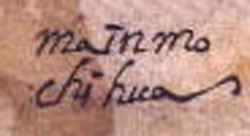 mainmo
chihua